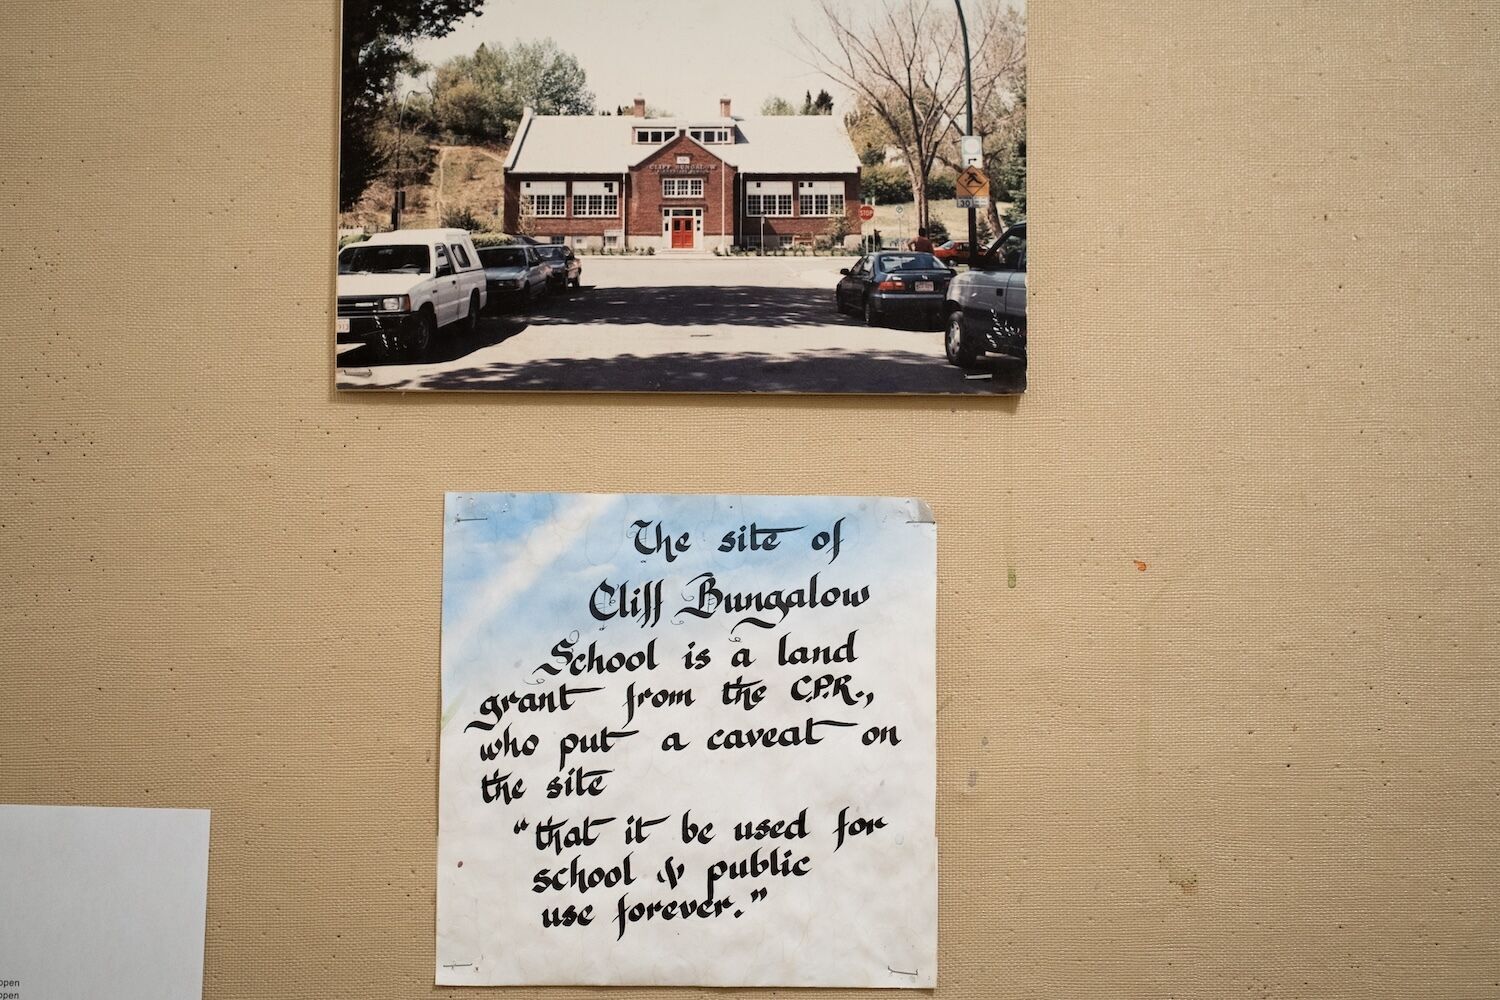 CLIFF BUNGALOW
STOP
30
The site of
Cliff Bungalow
School is a land
grant from the C.P.R.,
who put a caveat on
the site
"that it be used for
school & public
use forever."
open
open